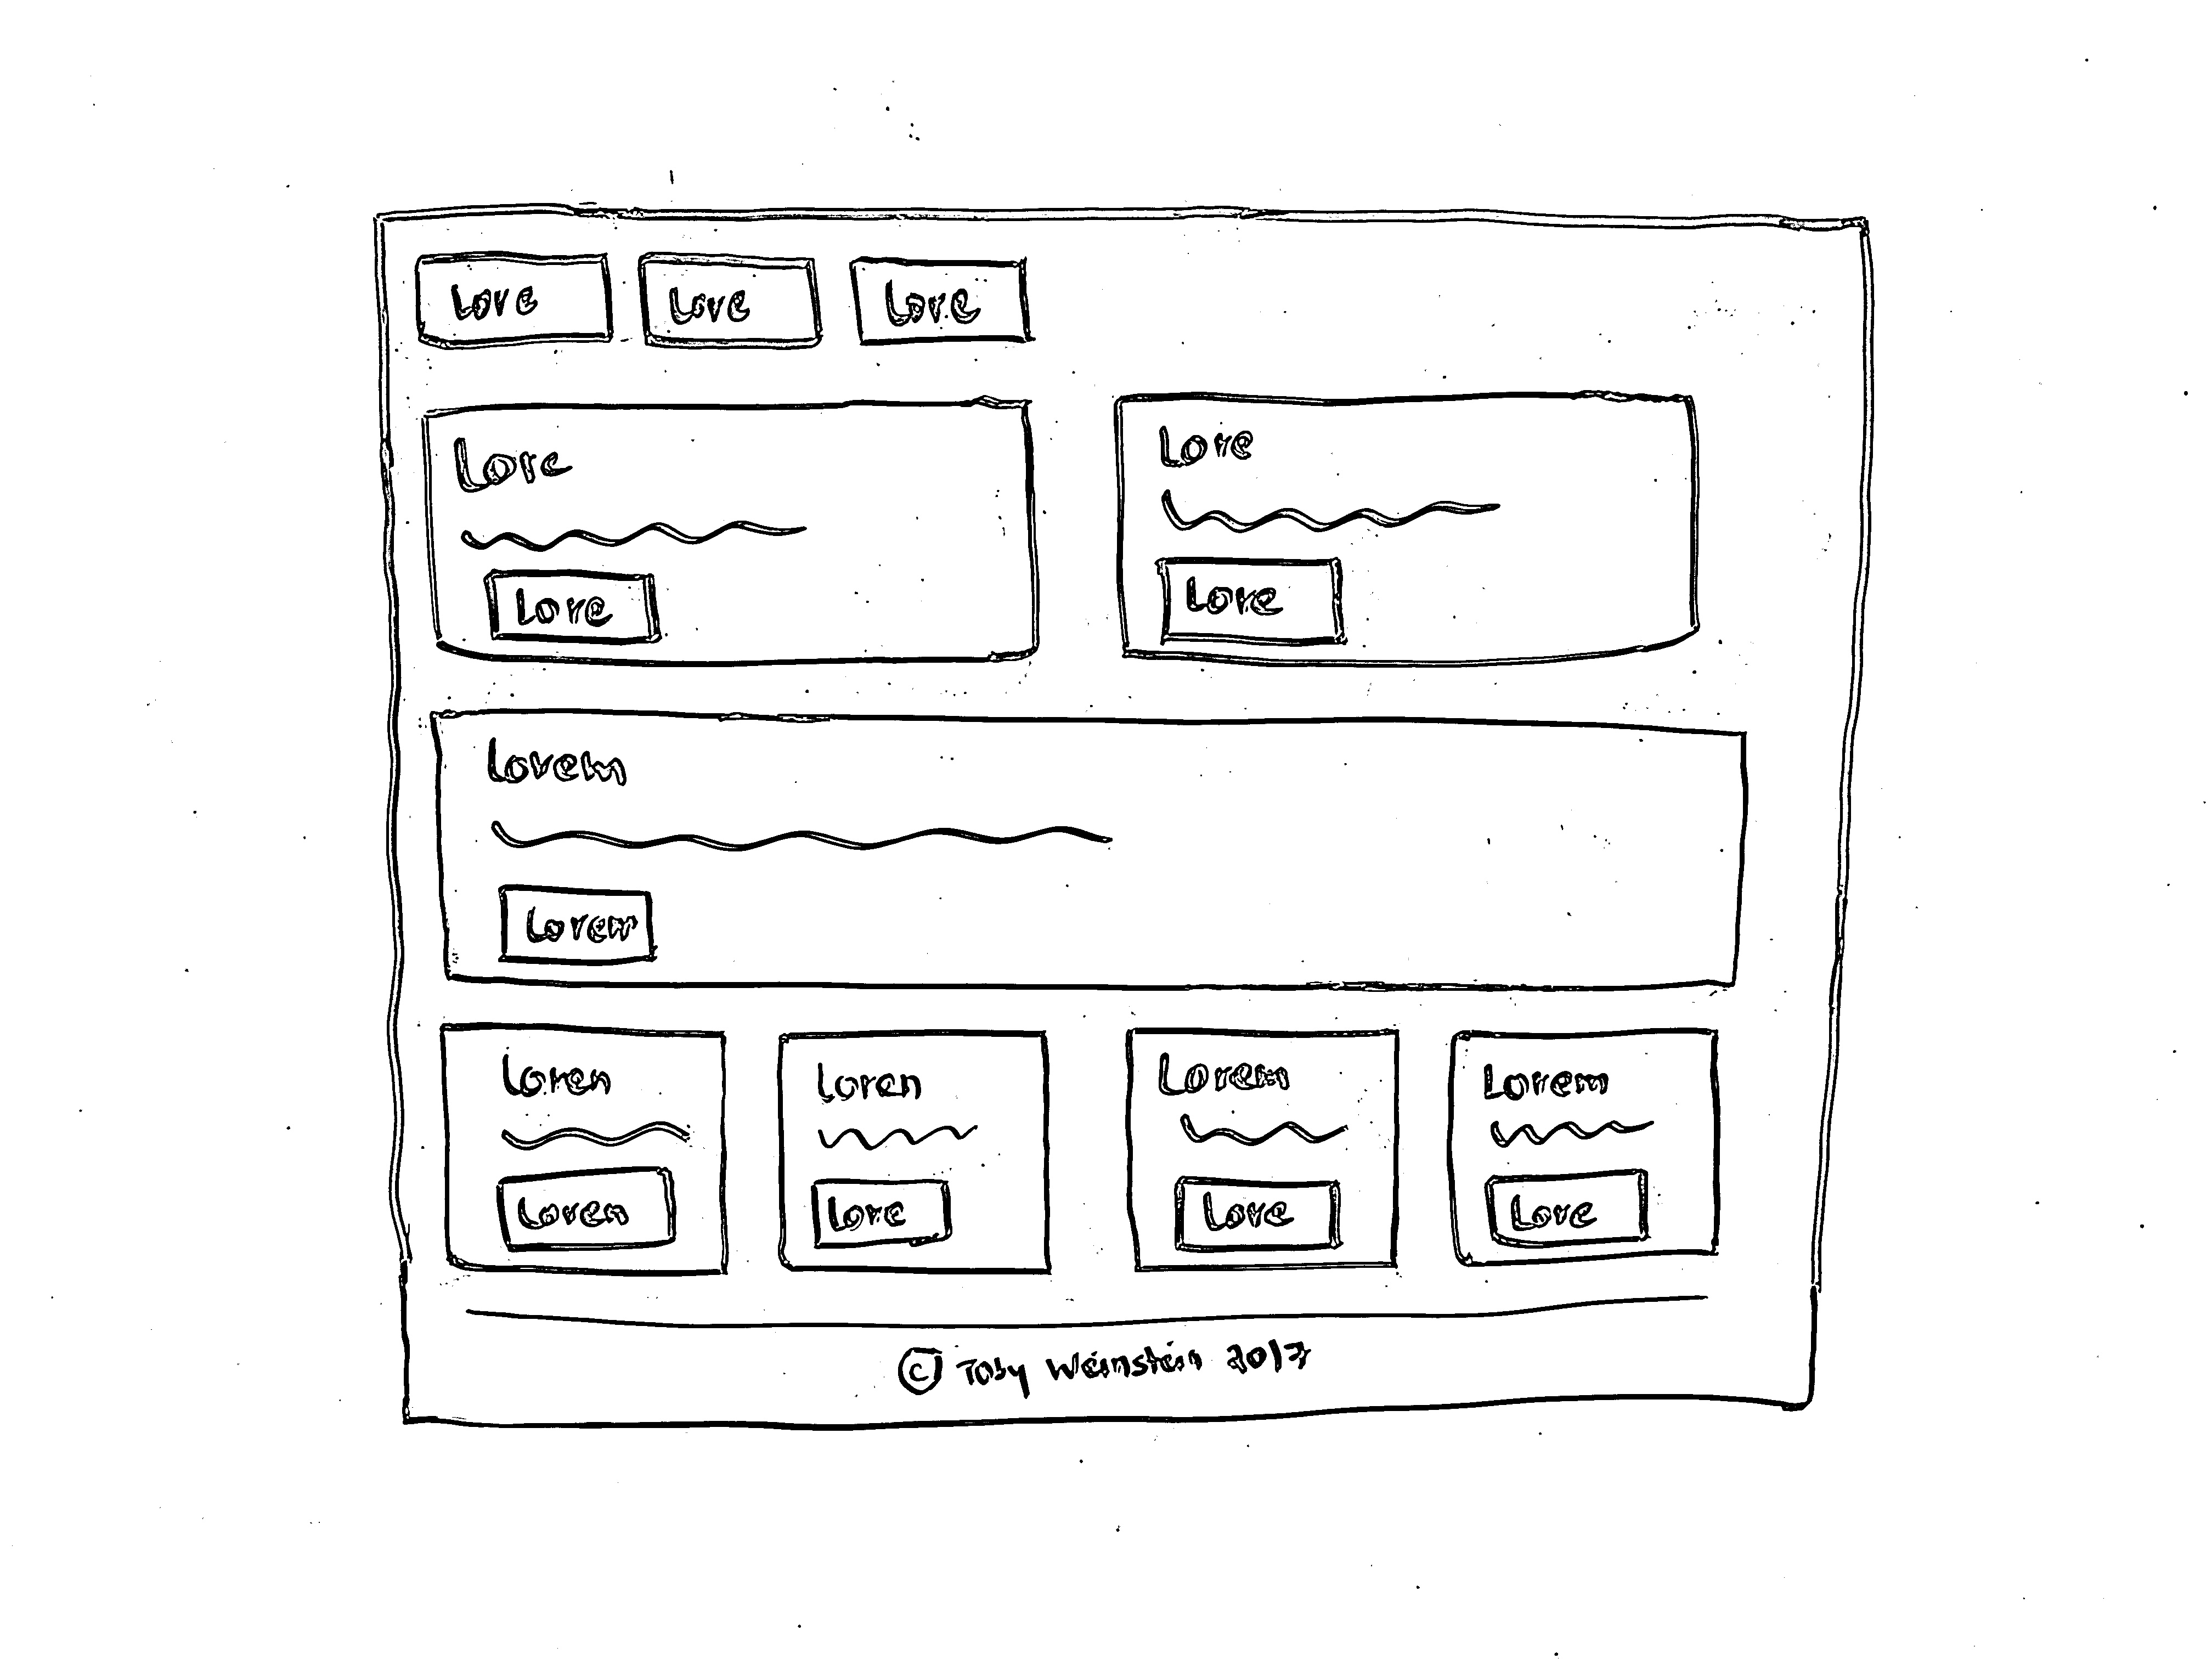 Lore Lore Lore
Lore
Lore
Lore
Lore
Lorem
Lorem
Loren
Loren
Loren
Lore
Lorem
Lore
Lorem
Lore
© Toby Weinstein 2017